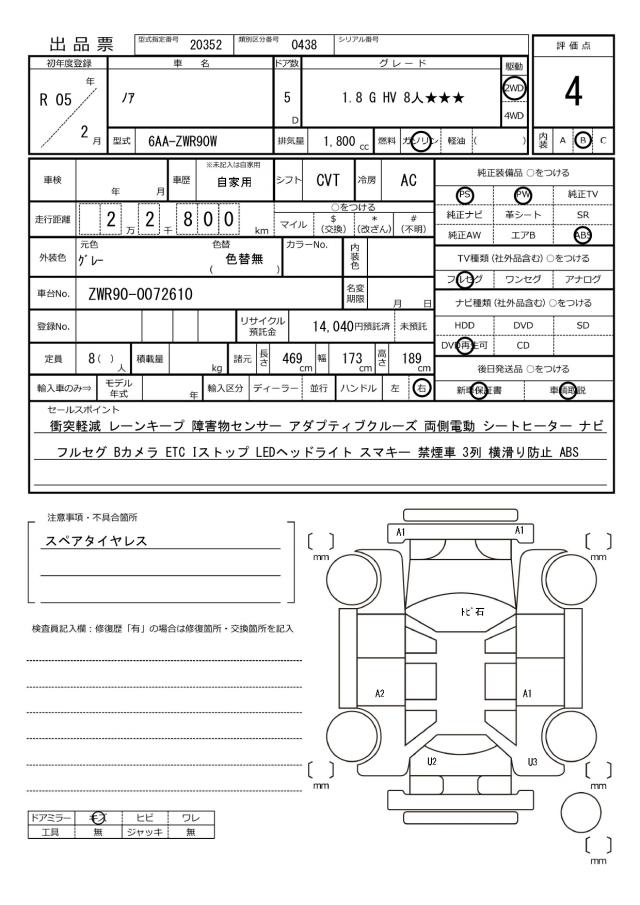 出品票 型式指定番号 20352 類別区分番号 0438 シリアル番号
評価点
4
内装 A B C
初年度登録 車名 ドア数 グレード 駆動
R 05 年 2 月 ノア 5 D 1.8 G HV 8人★★★ 2WD
4WD
型式 6AA-ZWR90W 排気量 1,800 cc 燃料 ガソリン 軽油 ( )
車検 年 月 車歴 ※未記入は自家用 自家用 シフト CVT 冷房 AC
走行距離 2 万 2 千 8 0 0 km ○をつける
マイル $(交換) *(改ざん) #(不明)
外装色 元色 グレー 色替 ( 色替無 ) カラーNo. 内装色
車台No. ZWR90-0072610 名変期限 月 日
登録No. リサイクル預託金 14,040円預託済 未預託
定員 8( )人 積載量 kg 諸元 長さ 469 cm 幅 173 cm 高さ 189 cm
輸入車のみ⇒ モデル年式 年 輸入区分 ディーラー 並行 ハンドル 左 右
純正装備品 ○をつける
PS PW 純正TV
純正ナビ 革シート SR
純正AW エアB ABS
TV種類 (社外品含む) ○をつける
フルセグ ワンセグ アナログ
ナビ種類 (社外品含む) ○をつける
HDD DVD SD
DVD再生可 CD
後日発送品 ○をつける
新車保証書 車輌取説
セールスポイント
衝突軽減 レーンキープ 障害物センサー アダプティブクルーズ 両側電動 シートヒーター ナビ
フルセグ Bカメラ ETC Iストップ LEDヘッドライト スマキー 禁煙車 3列 横滑り防止 ABS
注意事項・不具合箇所
スペアタイヤレス
検査員記入欄：修復歴「有」の場合は修復箇所・交換箇所を記入
ドアミラー キズ ヒビ ワレ
工具 無 ジャッキ 無
A1 A1
[ ] mm [ ] mm
トビ石
A2 A1
U2 U3
[ ] mm [ ] mm
[ ] mm